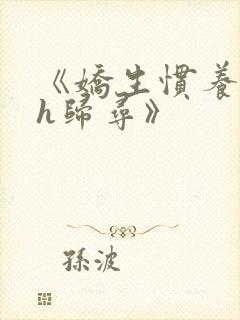 《嬌生慣養
h歸尋》
孫波